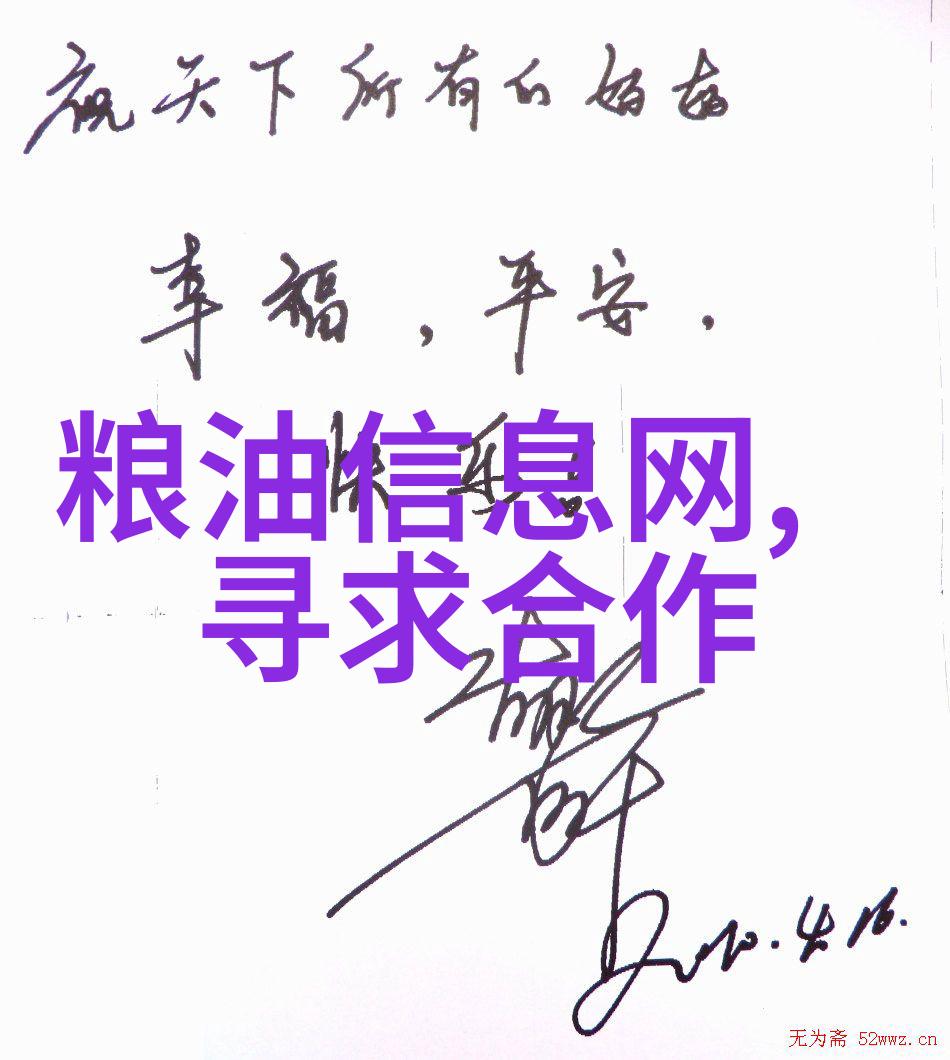 祝天下所有的妈妈
幸福,平安,
快乐!
粮油信息网,
寻求合作
2010.4.16.
无为斋 52wwz.cn